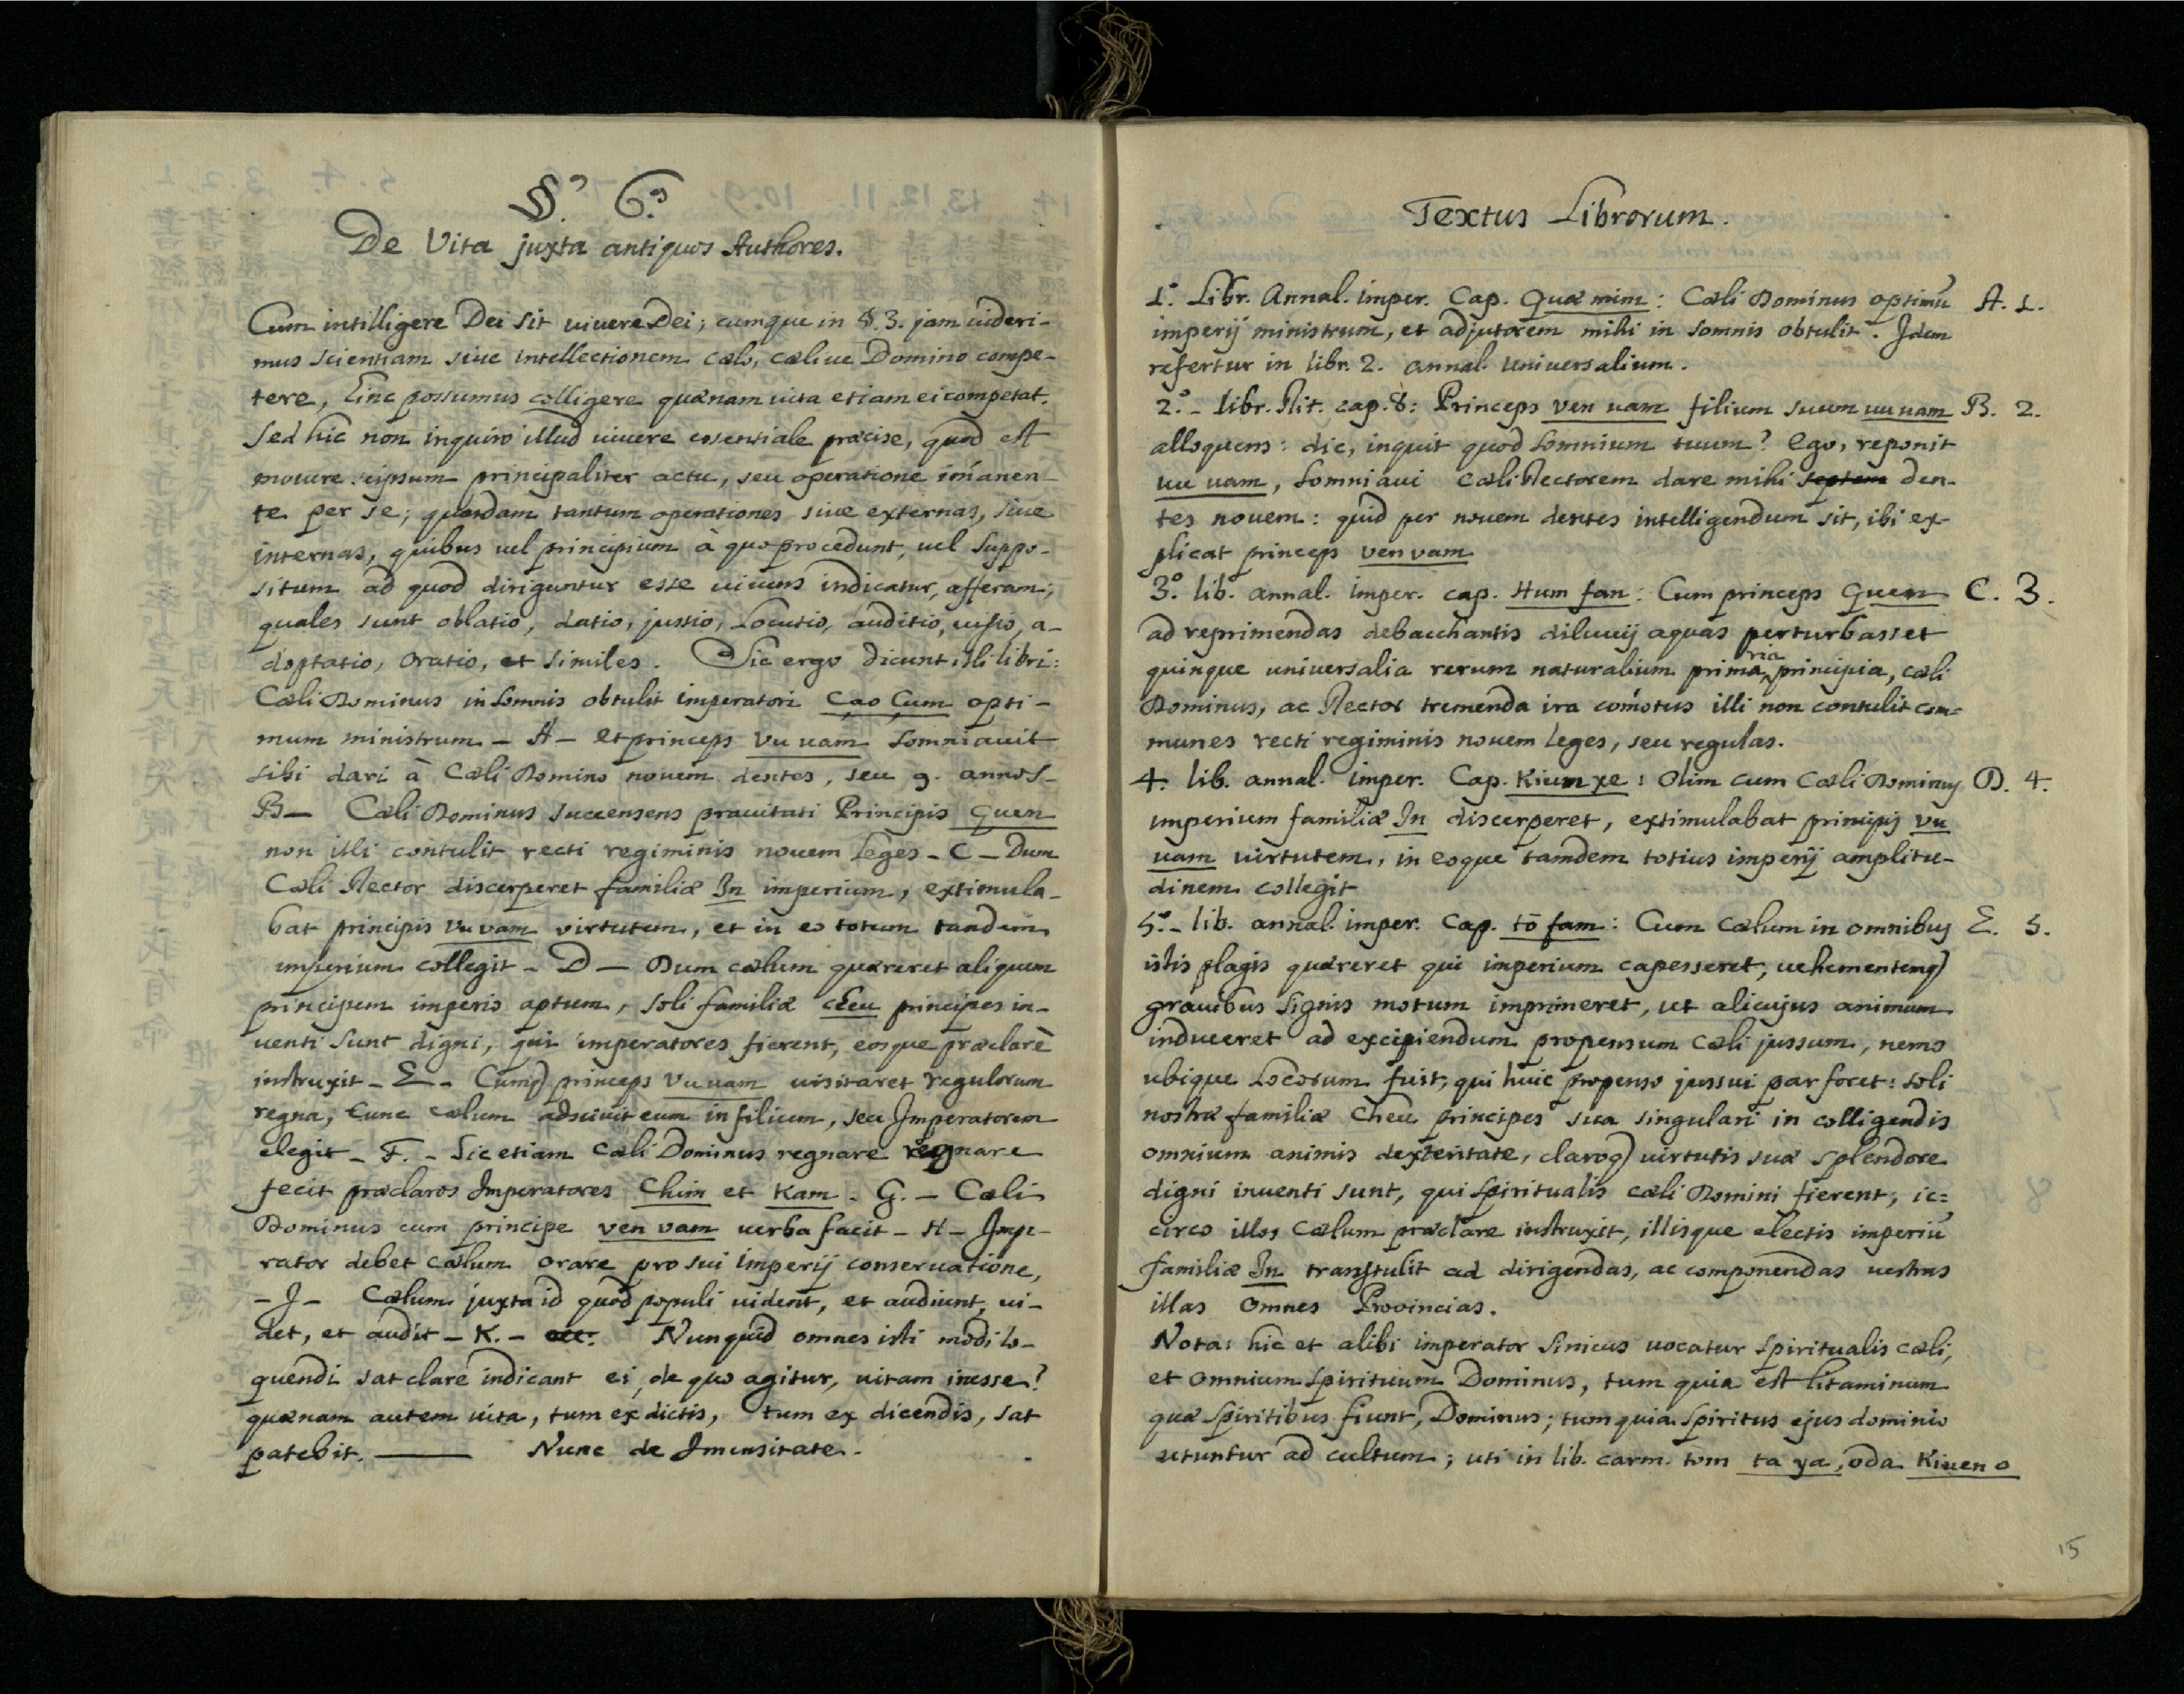 §.º 6.º
De Vita juxta antiquos Authores.
Cum intilligere Dei sit uiuere Dei; cumque in §. 3. jam uideri-
mus scientiam siue intellectionem cælo, cæliue Domino compe-
tere, hinc possumus colligere quænam uita etiam ei competat.
Sed hic non inquiro illud uiuere essentiale præcise, quod est
mouere seipsum principaliter actu, seu operatione im̃anen-
te per se; quasdam tantum operationes siue externas, siue
internas, quibus uel principium à quo procedunt, uel suppo-
situm ad quod diriguntur esse uiuens indicatur, afferam;
quales sunt oblatio, datio, jussio, Locutio, auditio, uisio, a-
doptatio, oratio, et similes. Sic ergo dicunt illi libri:
Cæli Dominus in somnis obtulit imperatori Çao Çum opti-
mum ministrum - A - et princeps Vu uam somniauit
sibi dari à Cæli Domino nouem dentes, seu 9. annos -
B - Cæli Dominus succensens prauitati Principis Quen
non illi contulit recti regiminis nouem leges - C - Dum
Cæli Rector discerperet familiæ In imperium, extimula-
bat principis Vu vam virtutem, et in eo totum tandem
imperium collegit - D - Dum cælum quæreret aliquem
principem imperio aptum, soli familiæ cheu principes in-
uenti sunt digni, qui imperatores fierent, eosque præclarè
instruxit - E - Cumq) princeps Vu uam uisitaret regulorum
regna, tunc cælum adsciuit eum in filium, seu Imperatorem
elegit - F. - Sic etiam Cæli Dominus regnare regnare
fecit præclaros Imperatores Chim et Kam - G. - Cæli
Dominus cum principe ven vam uerba facit - H - Impe-
rator debet cælum orare pro sui imperij conseruatione,
- J - Cælum juxta id quod populi uident, et audiunt, ui-
det, et audit - K. - etc. Nunquid omnes isti modi lo-
quendi sat clare indicant ei, de quo agitur, uitam inesse?
quænam autem uita, tum ex dictis, tum ex dicendis, sat
patebit. Nunc de Imensitate.
Textus Librorum.
1.º Libr. Annal. imper. Cap. Quæ mim: Cæli Dominus optimũ A. 1.
imperij ministrum, et adjutorem mihi in somnis obtulit. Idem
refertur in libr. 2. annal. Uniuersalium.
2.º - libr. Rit. cap. 8: Princeps Ven uam filium suum uu uam B. 2.
alloquens: dic, inquit quod somnium tuum? Ego, reponit
uu uam, somniaui Cæli Rectorem dare mihi septem den-
tes nouem: quid per nouem dentes intelligendum sit, ibi ex-
plicat princeps ven vam
3.º lib. annal. imper. cap. Hum fan: Cum princeps Quen C. 3.
ad reprimendas debacchantis diluuij aquas perturbasset
quinque uniuersalia rerum naturalium primaria principia, cæli
Dominus, ac Rector tremenda ira com̃otus illi non contulit com-
munes recti regiminis nouem leges, seu regulas.
4. lib. annal. imper. Cap. Kium xe: Olim cum Cæli Dominus D. 4.
imperium familiæ In discerperet, extimulabat principis vu
uam uirtutem, in eoque tamdem totius imperij amplitu-
dinem collegit
5.º - lib. annal. imper. Cap. tō fam: Cum Cælum in omnibus E. 5.
istis plagis quæreret qui imperium capesseret, uehementerq)
grauibus signis motum imprimeret, ut alicujus animum
induceret ad excipiendum propensum Cæli jussum, nemo
ubique Locorum fuit, qui huic propenso jussui par foret: soli
nostræ familiæ Cheu principes sua singulari in colligendis
omnium animis dexteritate, claroq) uirtutis suæ splendore
digni inuenti sunt, qui spiritualis cæli Domini fierent; ic=
circo illos Cælum præclare instruxit, illisque electis imperiũ
familiæ In transtulit ad dirigendas, ac componendas uestras
illas omnes Prouincias.
Nota: hic et alibi imperator Sinicus uocatur spiritualis cæli,
et omnium spirituum Dominus, tum quia est litaminum
quæ spiritibus fiunt, Dominus; tum quia spiritus ejus dominio
utuntur ad cultum; uti in lib. carm. tom ta ya, oda Kiuen o
15